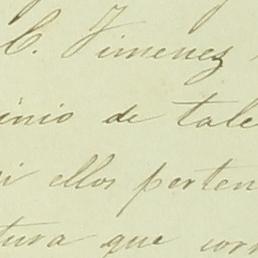 C. Jimenez
inio de tale
i ellos perten
tura que corr